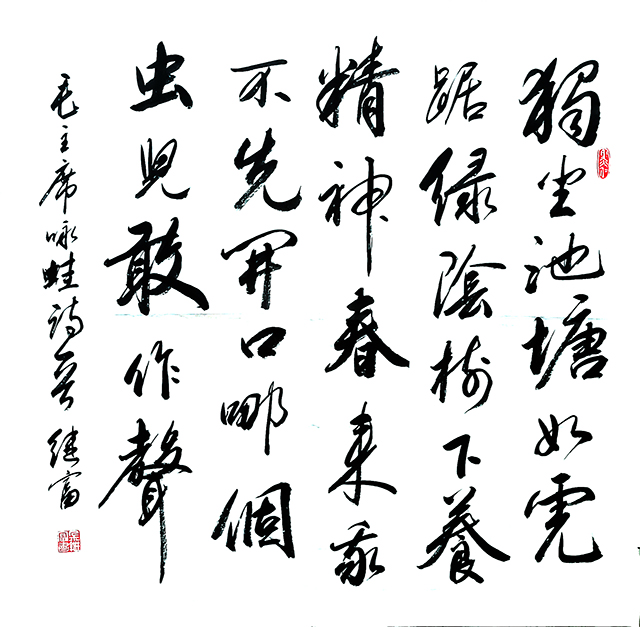 獨坐池塘如虎
踞綠陰樹下養
精神春來我
不先開口哪個
虫兒敢作聲
毛主席咏蛙詩一首 继富